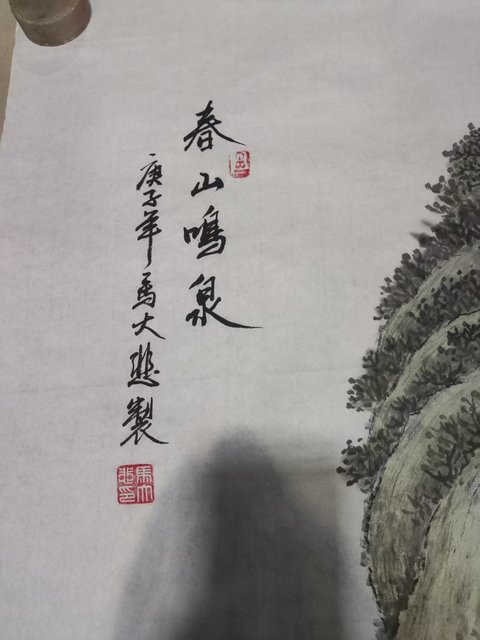 春山鳴泉
庚子年馬大悲製
馬大
悲印